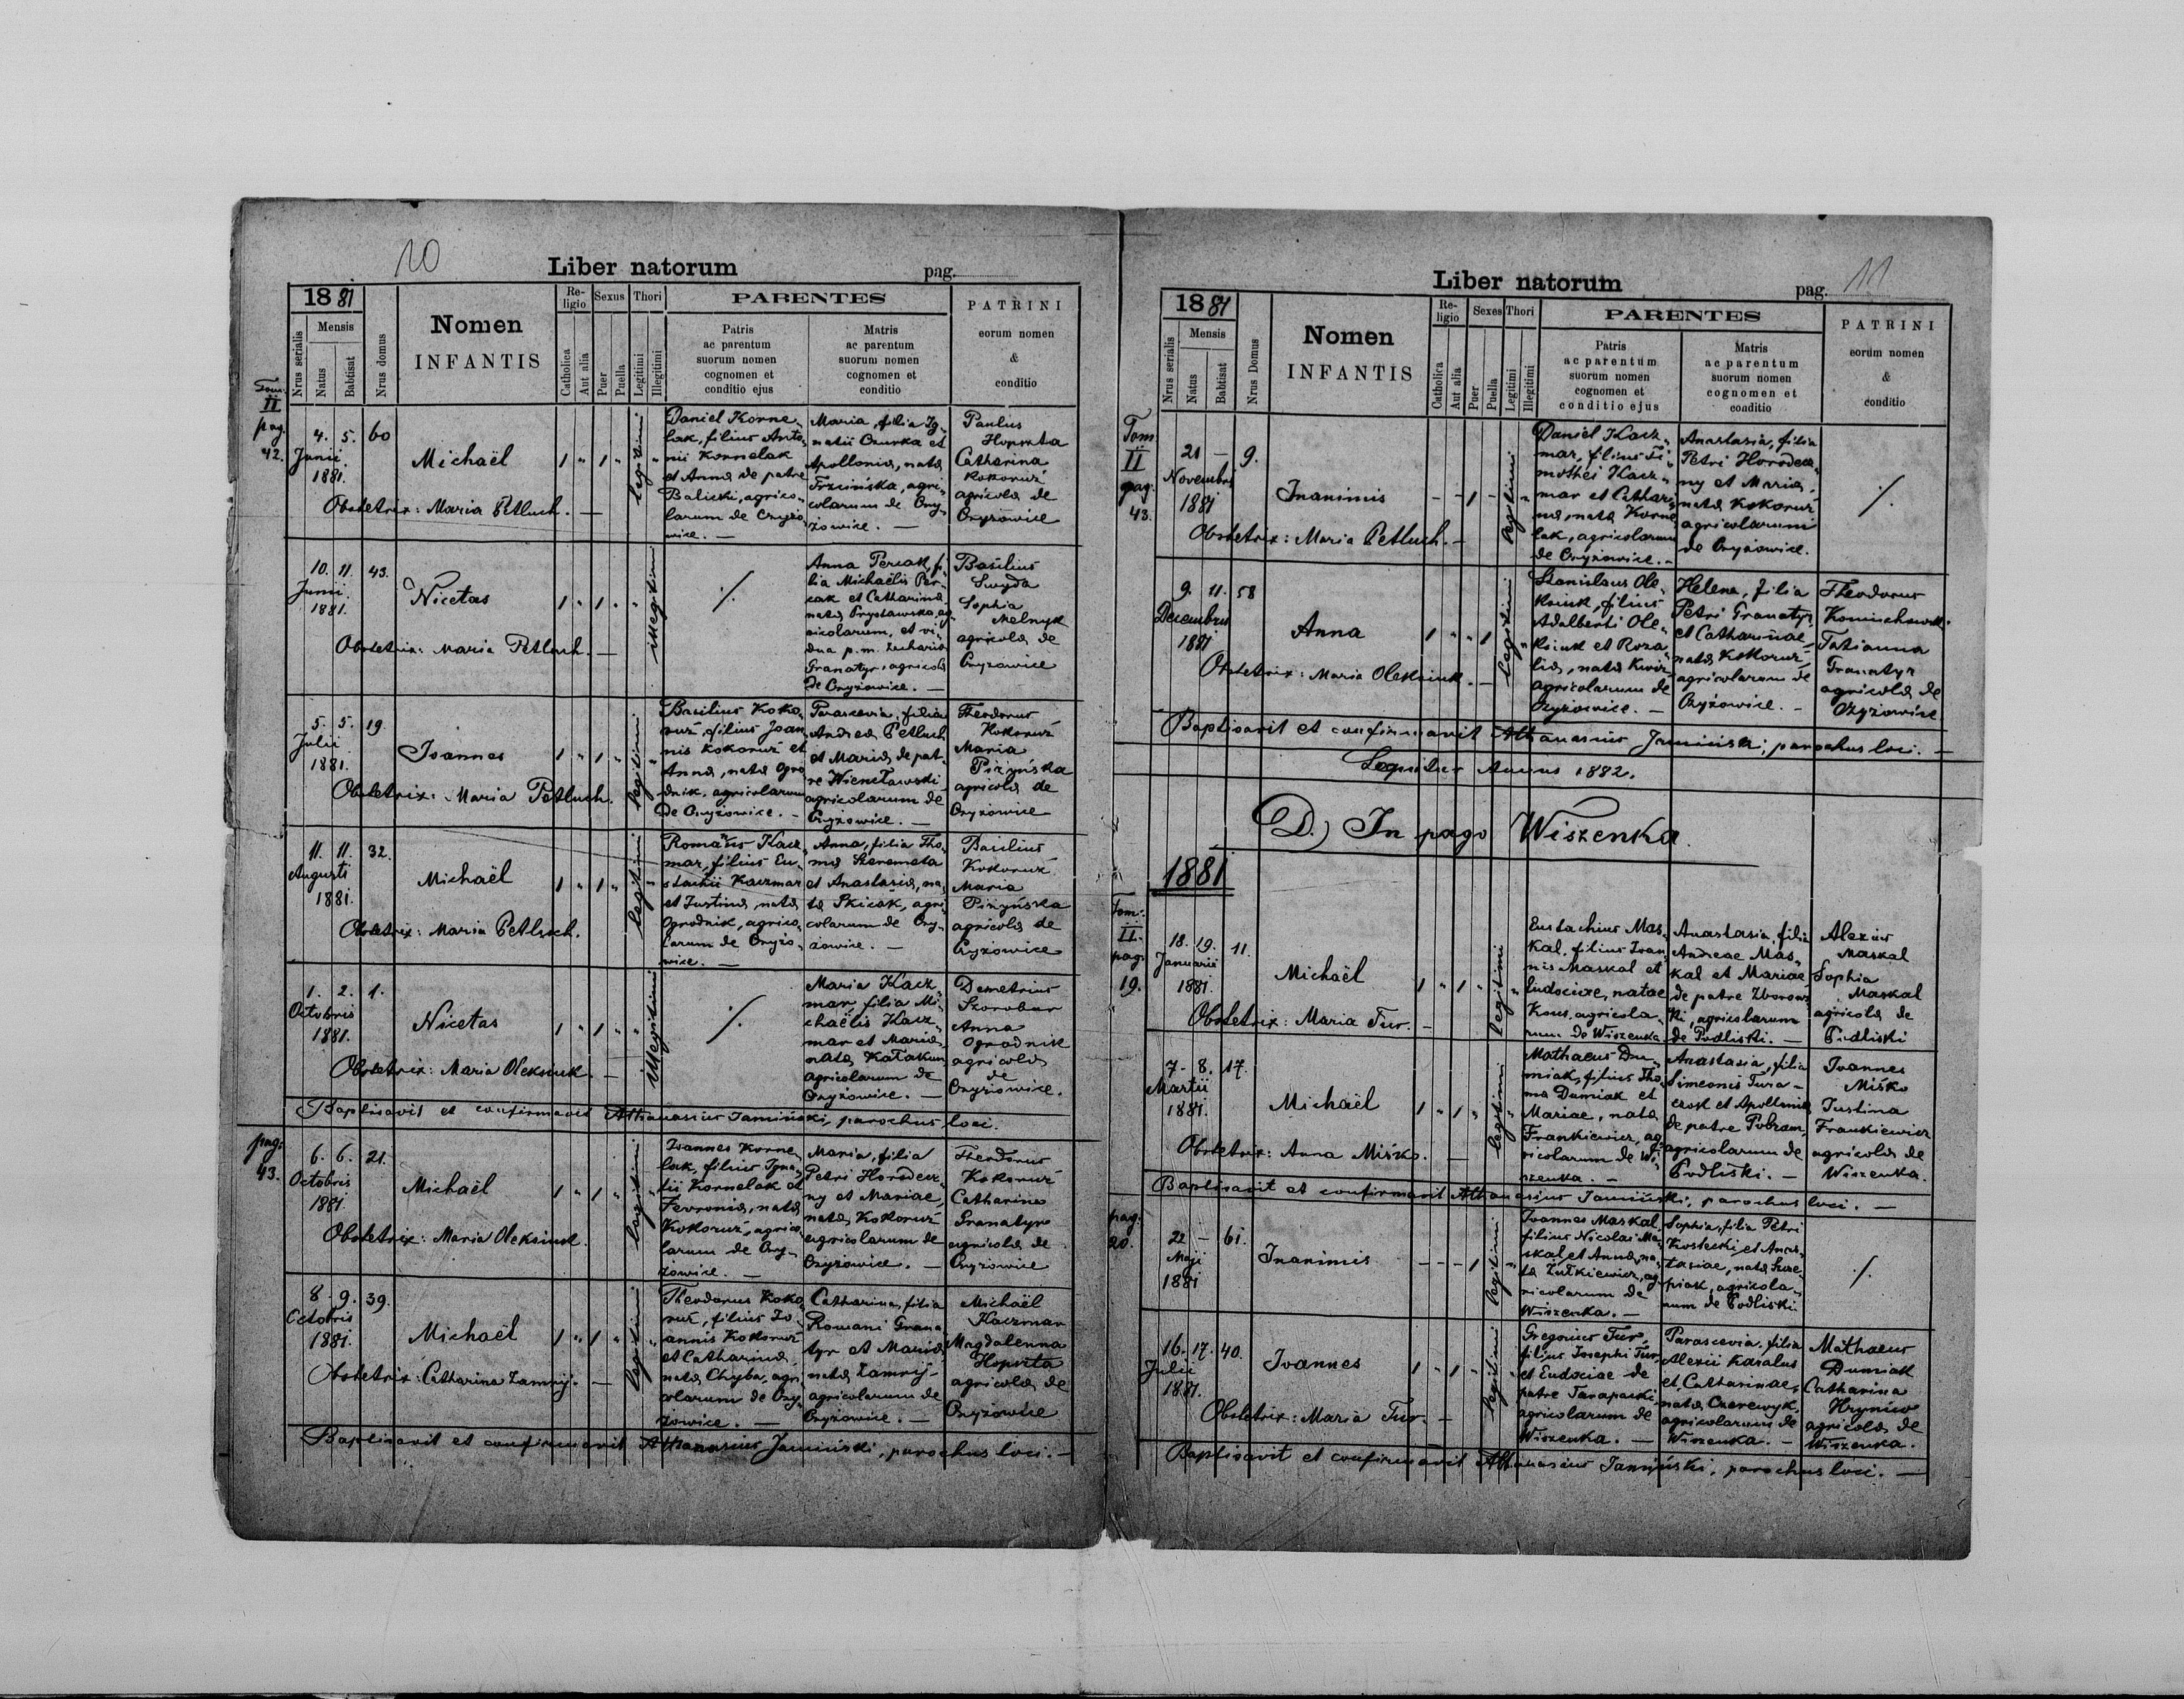 10
Liber natorum
pag.
1881
Nrus serialis
Mensis
Natus
Babtisat
Nrus domus
Nomen
INFANTIS
Re-
ligio
Catholica
Aut alia
Sexus
Puer
Puella
Thori
Legitimi
Illegitimi
PARENTES
Patris
ac parentum
suorum nomen
cognomen et
conditio ejus
Matris
ac parentum
suorum nomen
cognomen et
conditio
PATRINI
eorum nomen
&
conditio
Tom.
II
pag.
42.
4. 5. 60
Junii
1881.
Michaël
1 " 1 "
legitimi
"
Obstetrix: Maria Petluch. —
Daniel Korne-
lak, filius Anto-
nii Kornelak
et Anna de patre
Balicki, agrico-
larum de Czyżo-
wice. —
Maria, filia Ig-
natii Czurka et
Apollonia, nata
Trzcińska, agri-
colarum de Czy-
żowice. —
Paulus
Hopvta
Catharina
Kokoruź
agricola de
Czyżowice
10. 11. 43.
Junii
1881.
Nicetas
1 " 1 " "
illegitimi
Obstetrix: Maria Petluch. —
./.
Anna Percak, fi-
lia Michaëlis Per-
cak et Catharina
nata Prystawska, ag-
ricolarum, et vi-
dua p.m. Zacharia
Granatyr, agricola
de Czyżowice. —
Basilius
Swyda
Sophia
Melnyk
agricola de
Czyżowice
5. 5. 19.
Julii
1881.
Ioannes
1 " 1 "
legitimi
"
Obstetrix: Maria Petluch.
Basilius Koko-
ruź, filius Joan-
nis Kokoruź et
Anna, nata Ogro-
dnik, agricolarum
de Czyżowice. -
Parascevia, filia
Andrea Petluch
et Maria de pat-
re Wiencławski
agricolarum de
Czyżowice. —
Theodorus
Kokoruź
Maria
Piżyńska
agricola de
Czyżowice
11. 11. 32.
Augusti
1881.
Michaël
1 " 1 "
legitimi
"
Obstetrix: Maria Petluch.
Romanus Kacz-
mar, filius Eu-
stachii Kaczmar
et Justina, nata
Ogrodnik, agrico-
larum de Czyżo-
wice. —
Anna, filia Tho-
ma Szeremeta
et Anastasia, na-
ta Skicak, agri-
colarum de Czy-
żowice. —
Basilius
Kokoruź
Maria
Piżyńska
agricola de
Czyżowice
1. 2. 1.
Octobris
1881.
Nicetas
1 " 1 " "
illegitimi
Obstetrix: Maria Oleksiuk. —
./.
Maria Kacz-
mar filia Mi-
chaëlis Kacz-
mar et Maria
nata Kałakun
agricolarum de
Czyżowice. —
Demetrius
Skorobur
Anna
Ogrodnik
agricola
de
Czyżowice.
Baptisavit et confirmavit Athanasius Jamiński, parochus loci.
pag.
43.
6. 6. 21.
Octobris
1881.
Michaël
1 " 1 "
legitimi
"
Obstetrix: Maria Oleksiuk.
Ioannes Korne-
lak, filius Igna-
tii Kornelak et
Fevronia, nata
Kokoruź, agrico-
larum de Czy-
żowice. —
Maria, filia
Petri Horodecz-
ny et Mariae,
nata Kokoruź
agricolarum de
Czyżowice. —
Theodorus
Kokoruź
Catharina
Granatyr
agricola de
Czyżowice
8. 9. 39.
Octobris
1881.
Michaël
1 " 1 "
legitimi
"
Obstetrix: Catharina Zamnij. —
Theodorus Koko-
ruź, filius Jo-
annis Kokoruź
et Catharina,
nata Chyba, agri-
colarum de Czy-
żowice. —
Catharina, filia
Romani Grana-
tyr et Maria
nata Zamnij
agricolarum de
Czyżowice. —
Michaël
Kaczmar
Magdalenna
Hopvta
agricola de
Czyżowice
Baptisavit et confirmavit Athanasius Jamiński, parochus loci. —
Liber natorum
pag. 11
1881
Nrus serialis
Mensis
Natus
Babtisat
Nrus Domus
Nomen
INFANTIS
Re-
ligio
Catholica
Aut alia
Sexes
Puer
Puella
Thori
Legitimi
Illegitimi
PARENTES
Patris
ac parentum
suorum nomen
cognomen et
conditio ejus
Matris
ac parentum
suorum nomen
cognomen et
conditio
PATRINI
eorum nomen
&
conditio
Tom
II
pag.
43.
21 — 9.
Novembris
1881
Inanimis
- - 1 -
legitimi
"
Obstetrix: Maria Petluch. —
Daniel Kacz-
mar, filius Ti-
mothei Kacz-
mar et Cathari-
na, nata Korne-
lak, agricolarum
de Czyżowice. -
Anastasia, filia
Petri Horodecz-
ny et Maria,
nata Kokoruź
agricolarum
de Czyżowice.
./.
9. 11. 58
Decembris
1881
Anna
1 " " 1
legitimi
"
Obstetrix: Maria Oleksiuk. —
Stanislaus Ole-
ksiuk, filius
Adalberti Ole-
ksiuk et Roza-
lia, nata Kwiz
agricolarum de
Czyżowice. —
Helena, filia
Petri Granatyr
et Catharinae
nata Kokoruź,
agricolarum de
Czyżowice. -
Theodorus
Tatianna
Granatyr
agricola de
Czyżowice
Baptisavit et confirmavit Athanasius Jamiński, parochus loci. —
Sequitur Annus 1882.
D.) In pago Wiszenka.
1881
Tom.
II.
pag.
19.
18. 19. 11.
Januarii
1881.
Michaël
1 " 1 "
legitimi
"
Obstetrix: Maria Tur. —
Eustachius Mas-
kal, filius Ioan-
nis Maskal et
Eudociae, natae
Kous, agricola-
rum de Wiszenka.
Anastasia, filia
Andreae Mas-
kal et Mariae
de patre Zborows-
ki, agricolarum
de Podliski. —
Alexius
Maskal
Sophia
Maskal
agricola de
Podliski
7. 8. 17.
Martii
1881.
Michaël
1 " 1 "
legitimi
"
Obstetrix: Anna Miśko. —
Mathaeus Du-
miak, filius Tho-
ma Dumiak et
Mariae, nata
Frankiewicz, ag-
ricolarum de Wi-
szenka. —
Anastasia, filia
Simeonis Tura-
czok et Apollonia
de patre Pobram,
agricolarum de
Podliski. —
Ioannes
Miśko
Justina
Frankiewicz
agricola de
Wiszenka.
Baptisavit et confirmavit Athanasius Jamiński, parochus loci. —
pag.
20.
22 — 61.
Maji
1881
Inanimis
- - - 1
legitimi
"
Ioannes Maskal
filius Nicolai Ma-
skal et Anna, na-
ta Żułkiewicz, ag-
ricolarum de
Wiszenka. —
Sophia, filia Petri
Kostecki et Anas-
tasiae, nata Szcze-
piak, agricola-
rum de Podliski
./.
16. 17. 40.
Julii
1881.
Ioannes
1 - 1 -
legitimi
"
Obstetrix: Maria Tur. —
Gregorius Tur,
filius Josephi Tur
et Eudociae de
patre Tarapacki
agricolarum de
Wiszenka. —
Parascevia, filia
Alexii Karalus
et Catharinae,
nata Czerewyk,
agricolarum de
Wiszenka. -
Mathaeus
Dumiak
Catharina
Hryniw
agricola de
Wiszenka.
Baptisavit et confirmavit Athanasius Jamiński, parochus loci. —